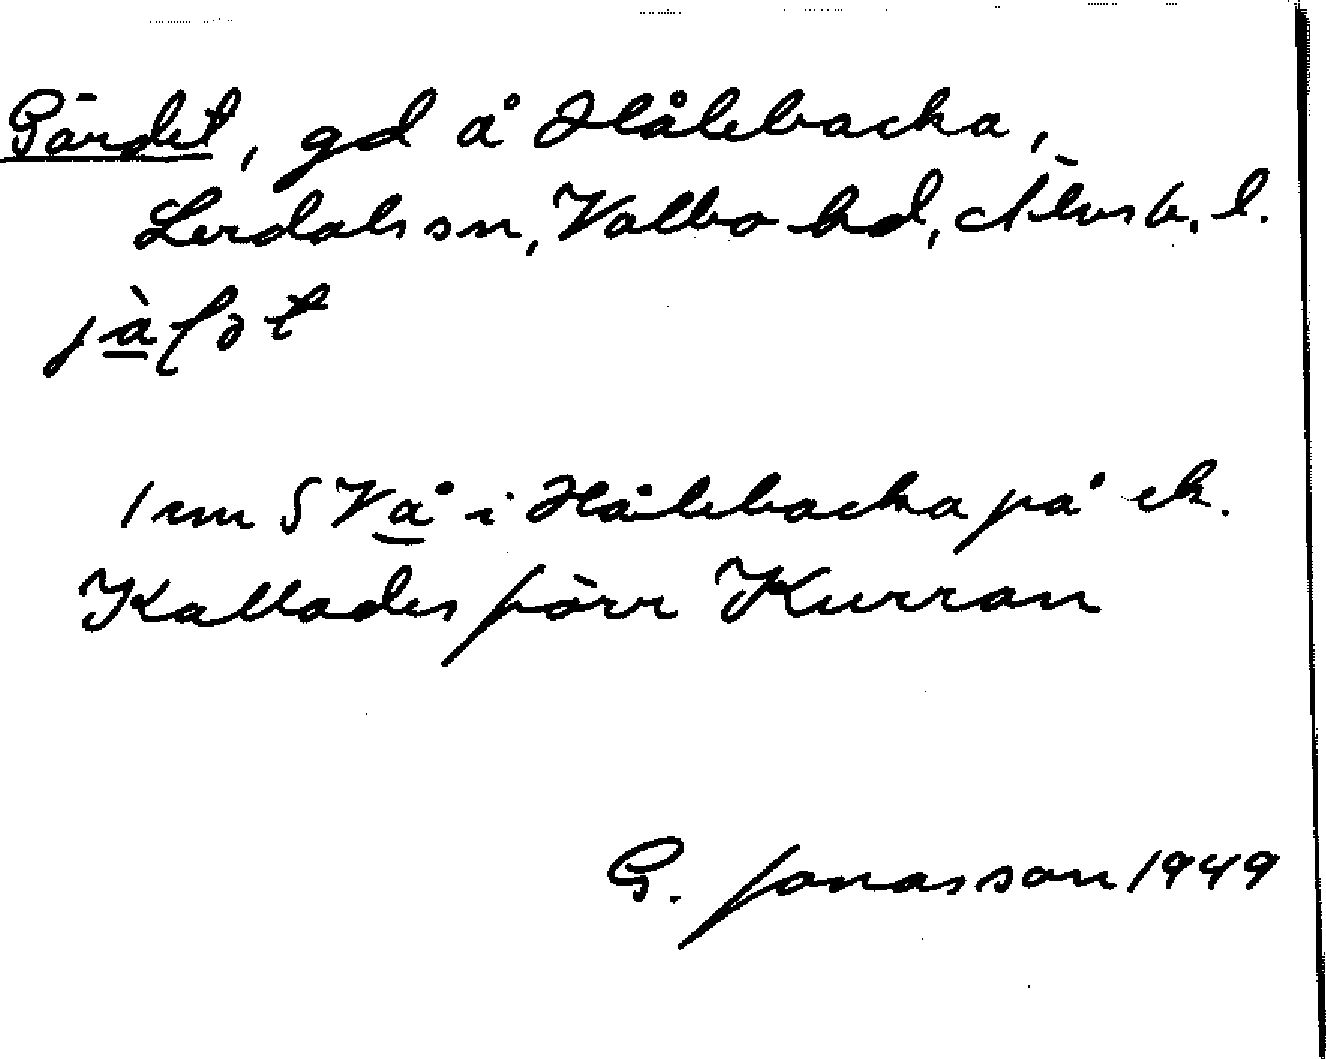 Gärdet, gd å Hålebacka,
Lerdals sn, Valbo hd, Älvsb. l.
1 mm SV å i Hålebacka på ek.
Kallades förr Kurran
G. Jonasson 1949